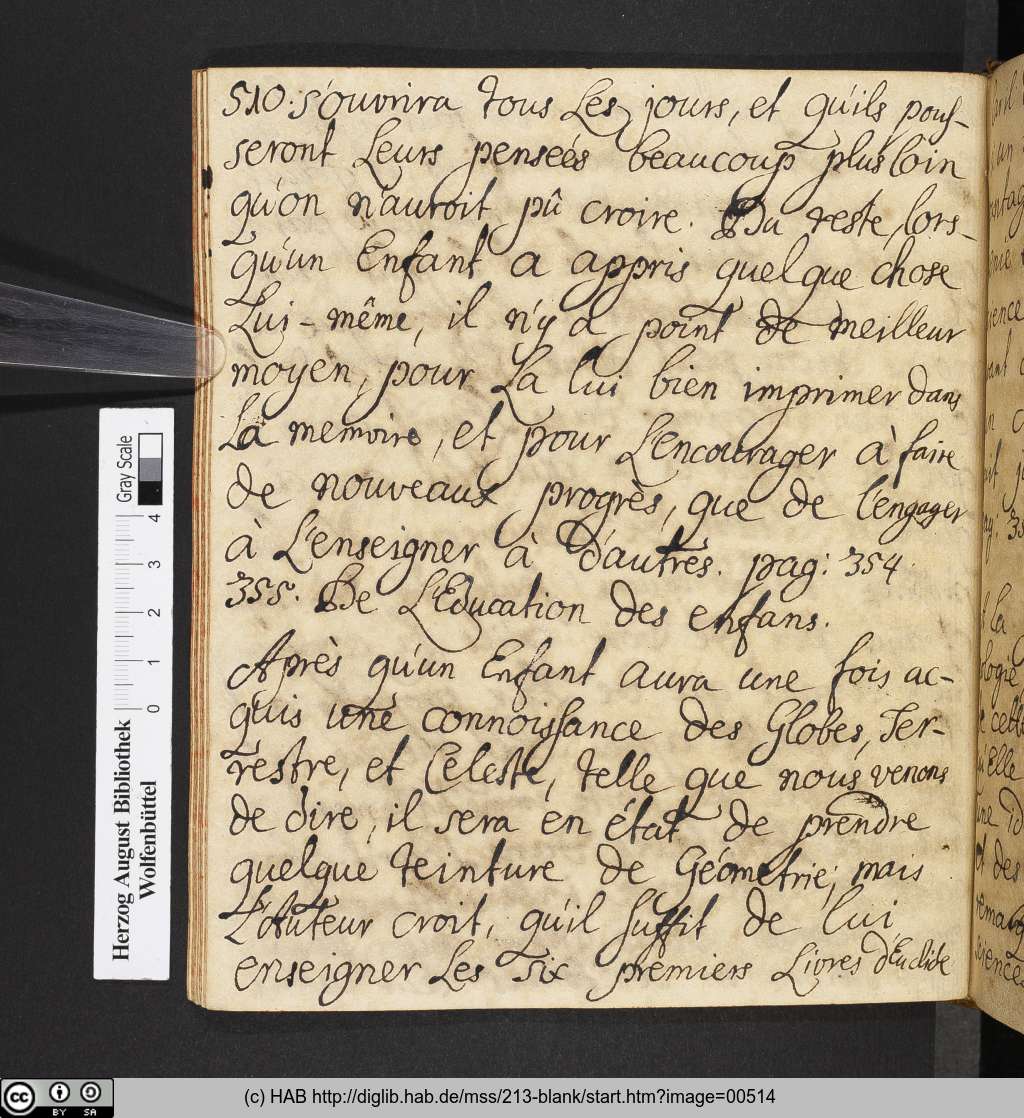 510. s'ouvrira tous Les jours, et qu'ils pous-
seront Leurs pensées beaucoup plus loin
qu'on n'auroit pû croire. Du reste, lors-
qu'un Enfant a appris quelque chose
Lui-même, il n'y a point de meilleur
moyen, pour La lui bien imprimer dans
La memoire, et pour L'encourager à faire
de nouveaux progrès, que de l'engager
à L'enseigner à d'autres. pag: 354.
355. De L'Education des enfans.
Après qu'un Enfant aura une fois ac-
quis une connoissance des Globes, Ter-
restre, et Celeste, telle que nous venons
de dire, il sera en état de prendre
quelque teinture de Géometrie; mais
L'Auteur croit, qu'il suffit de lui
enseigner Les six premiers Livres d'Euclide
Herzog August Bibliothek
Wolfenbüttel
Gray Scale
0 1 2 3 4
cc BY SA
(c) HAB http://diglib.hab.de/mss/213-blank/start.htm?image=00514